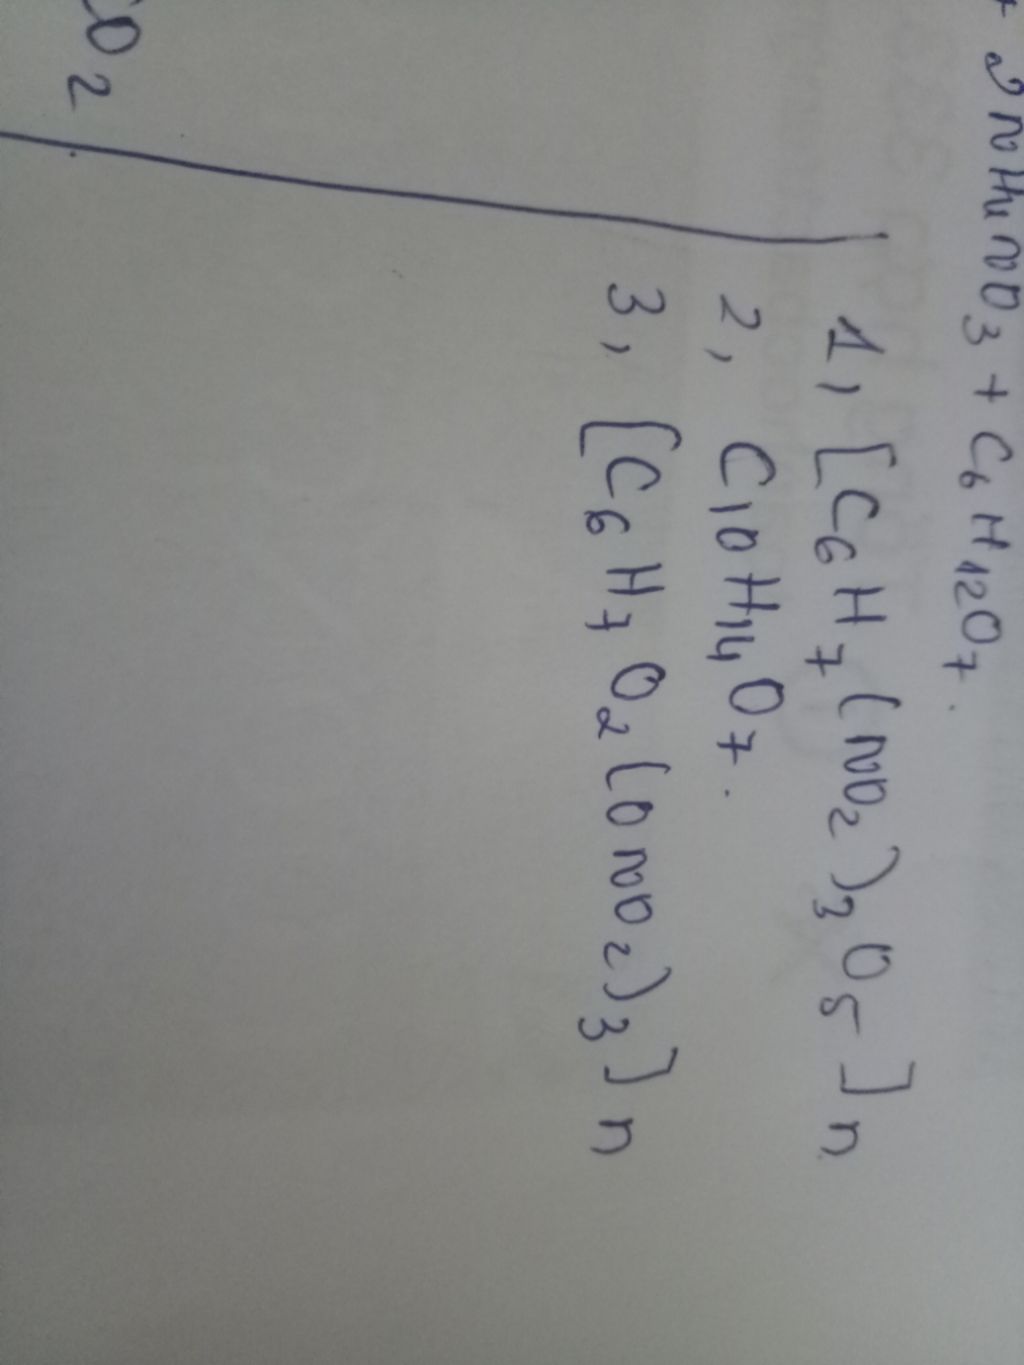 + 2NH₄NO₃ + C₆H₁₂O₇.
1, [C₆H₇(NO₂)₃O₅]n
2, C₁₀H₁₄O₇.
3, [C₆H₇O₂(ONO₂)₃]n
CO₂